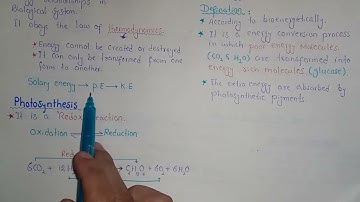 gy relationships in
Biological System
It obeys the law of thermodynamics.
* Energy cannot be created or destroyed
* It can only be transformed from one
form to another
Salary energy → P.E → K.E
Photosynthesis
* It is a Redox reaction.
Oxidation Reduction
Red
6CO2 + 12H O → C6H12O6 + 6O2 + 6H2O
Definition:
* According to bioenergetically.
* It is a energy conversion process
in which poor energy molecules
(CO2 & H2O) are transformed into
energy rich molecules (glucose).
* The extra energy are absorbed by
photosynthetic pigments.